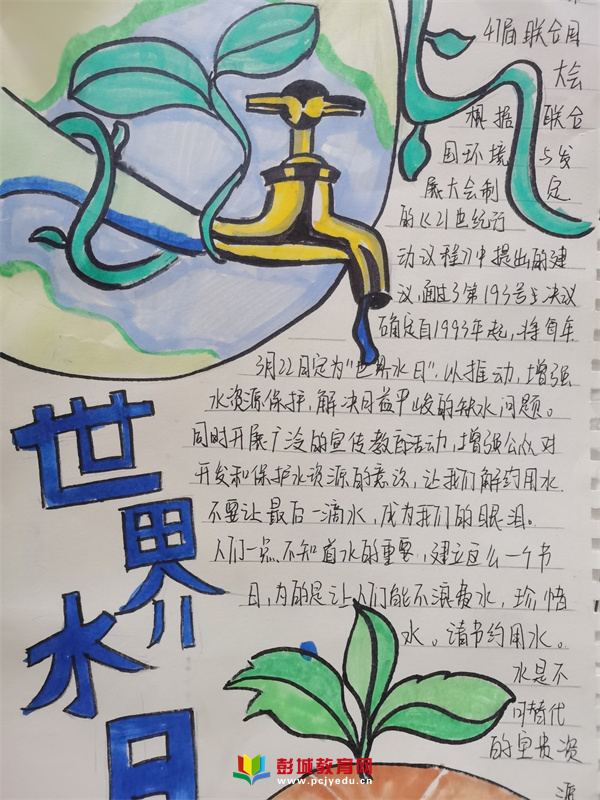 47届联合国
大会
根据联合
国环境与发
展大会制定
的《21世纪行
动议程》中提出的建
议,通过了第193号决议
确定自1993年起,将每年
3月22日定为"世界水日",以推动,增强
水资源保护,解决日益严峻的缺水问题。
同时开展广泛的宣传教育活动,增强公众对
开发和保护水资源的意识,让我们解约用水
不要让最后一滴水,成为我们的眼泪。
人们一点不知道水的重要,建立这么一个节
日,为的是让人们能不浪费水,珍惜
水。请节约用水。
水是不
可替代
的宝贵资
源
世界水日
彭城教育网
www.pcjyedu.com